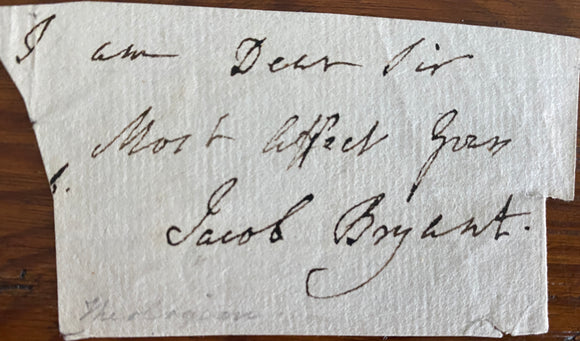 I am Dear Sir
Most affect Yours
Jacob Bryant.
Theologian